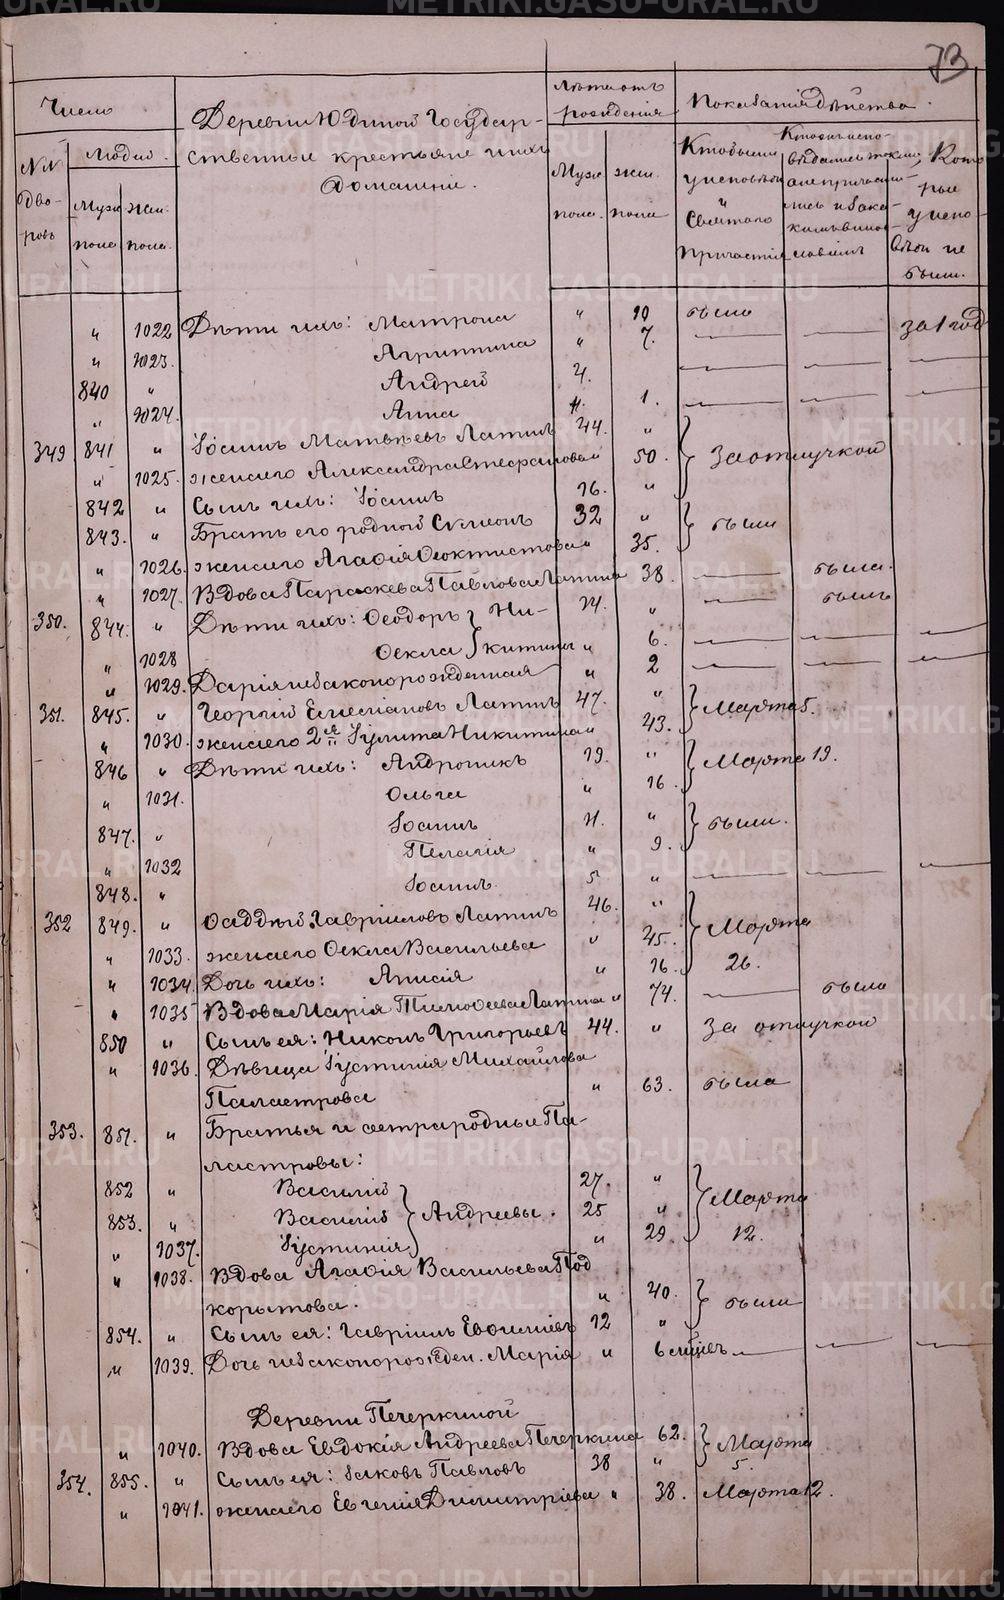 73
Число
Деревни Юдиной Государ-
ственные крестьяне и ихъ
домашніе.
Лѣта отъ
рожденія
Показанія дѣйства.
№№
дво-
ровъ
Людей.
Муж.
пола
Жен.
пола.
Муж.
пола.
жен.
пола
Кто были
у исповѣди
и
Святаго
Причастія
Кто
Кото
рые
у испо-
вѣди не
были.
" 1022 Дѣти ихъ: Матрона " 10 была за 1 год
" 1023. Агриппина " 7. — — —
840 " Андрей 4. — — —
" 1024. Анна " 1. — — —
349 841 " Іоаннъ Матвѣевъ Лапинъ 44. " } За отлучкой
" 1025. жена его Александра Стефанова " 50.
842 " Сынъ ихъ: Іоаннъ 16. "
843. " Братъ его родной Симеонъ 32 " } были
" 1026. жена его Агафія Ѳеоктистова " 35.
" 1027. Вдова Параскева Павлова Лапина 38. — была.
350. 844. " Дѣти ихъ: Ѳеодоръ } Ни- 14. " — былъ
" 1028 Ѳекла } китины " 6. — — —
" 1029. Дарія незаконорожденная " 2 — — —
351. 845. " Георгій Емеліановъ Лапинъ 47. " } Марта 5.
" 1030. жена его 2я Іулита Никитина " 43.
846 " Дѣти ихъ: Андроникъ 19. " } Марта 19.
" 1031. Ольга " 16.
847. " Іоаннъ 11. " } были.
" 1032 Пелагія " 9.
848. " Іоаннъ 5 " — — —
352 849. " Ѳаддѣй Гавріиловъ Лапинъ 46. " } Марта
" 1033. жена его Ѳекла Васильева " 45.
" 1034. Дочь ихъ: Анисія " 16. 26.
" 1035 Вдова Марія Тимоѳеева Лапина " 74. — была
850 " Сынъ ея: Никонъ Григорьевъ 44. " За отлучкой
" 1036. Дѣвица Іустинія Михайлова
Паластрова " 63. была
353. 851. " Братья и сестра родные Па-
ластровы:
852 " Василій 27. " } Марта
853. " Василій } Андреевы. 25 "
" 1037. Іустинія " 29. 12.
" 1038. Вдова Агафія Васильева Под
корытова. " 40. } были
854. " Сынъ ея: Гавріилъ Евѳиміевъ 12 "
" 1039. Дочь незаконорожден. Марія " 6 мѣсяцев — — —
Деревни Печеркиной
" 1040. Вдова Евдокія Андреева Печеркина 62. } Марта
354. 855. " Сынъ ея: Іаковъ Павловъ 38 " 5.
" 1041. жена его Евгенія Димитріева " 38. Марта 12.
METRIKI.GASO-URAL.RU